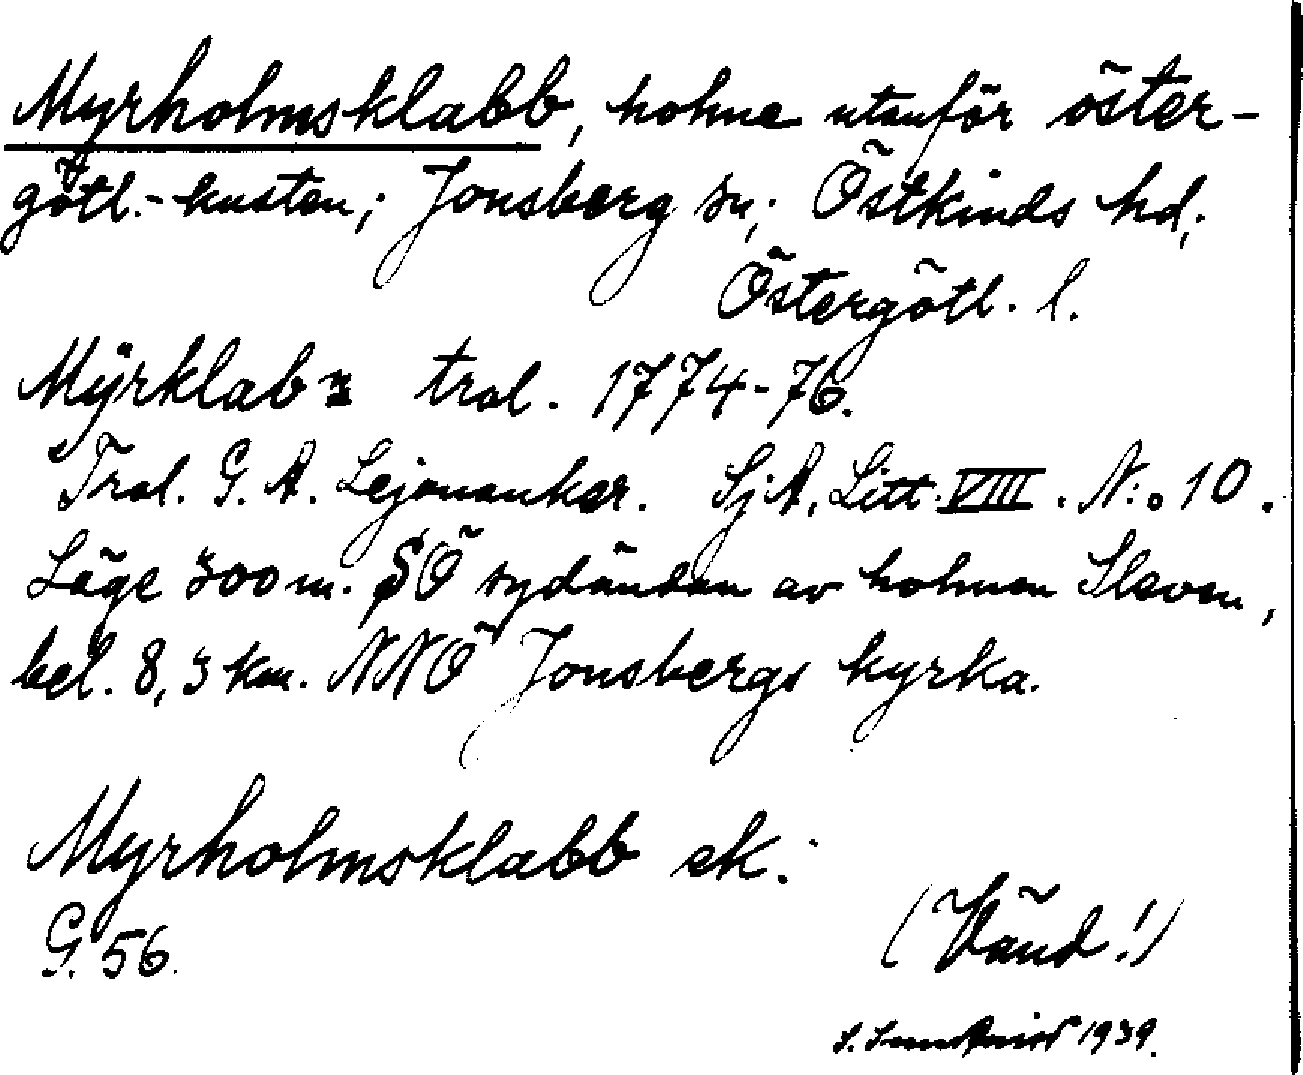 Myrholmsklabb, holme utanför öster-
götl.-kusten; Jonsberg sn; Östkinds hd;
Östergötl. l.
Mÿrklab trol. 1774-76.
Trol. G. A. Lejonankar. SjA, Litt. VIII. N:o 10.
Läge 300 m. SÖ sydändan av holmen Sleven,
bel. 8,3 km. NNÖ Jonsbergs kyrka.
Myrholmsklabb ek.
G. 56.
(Vänd!)
1939.